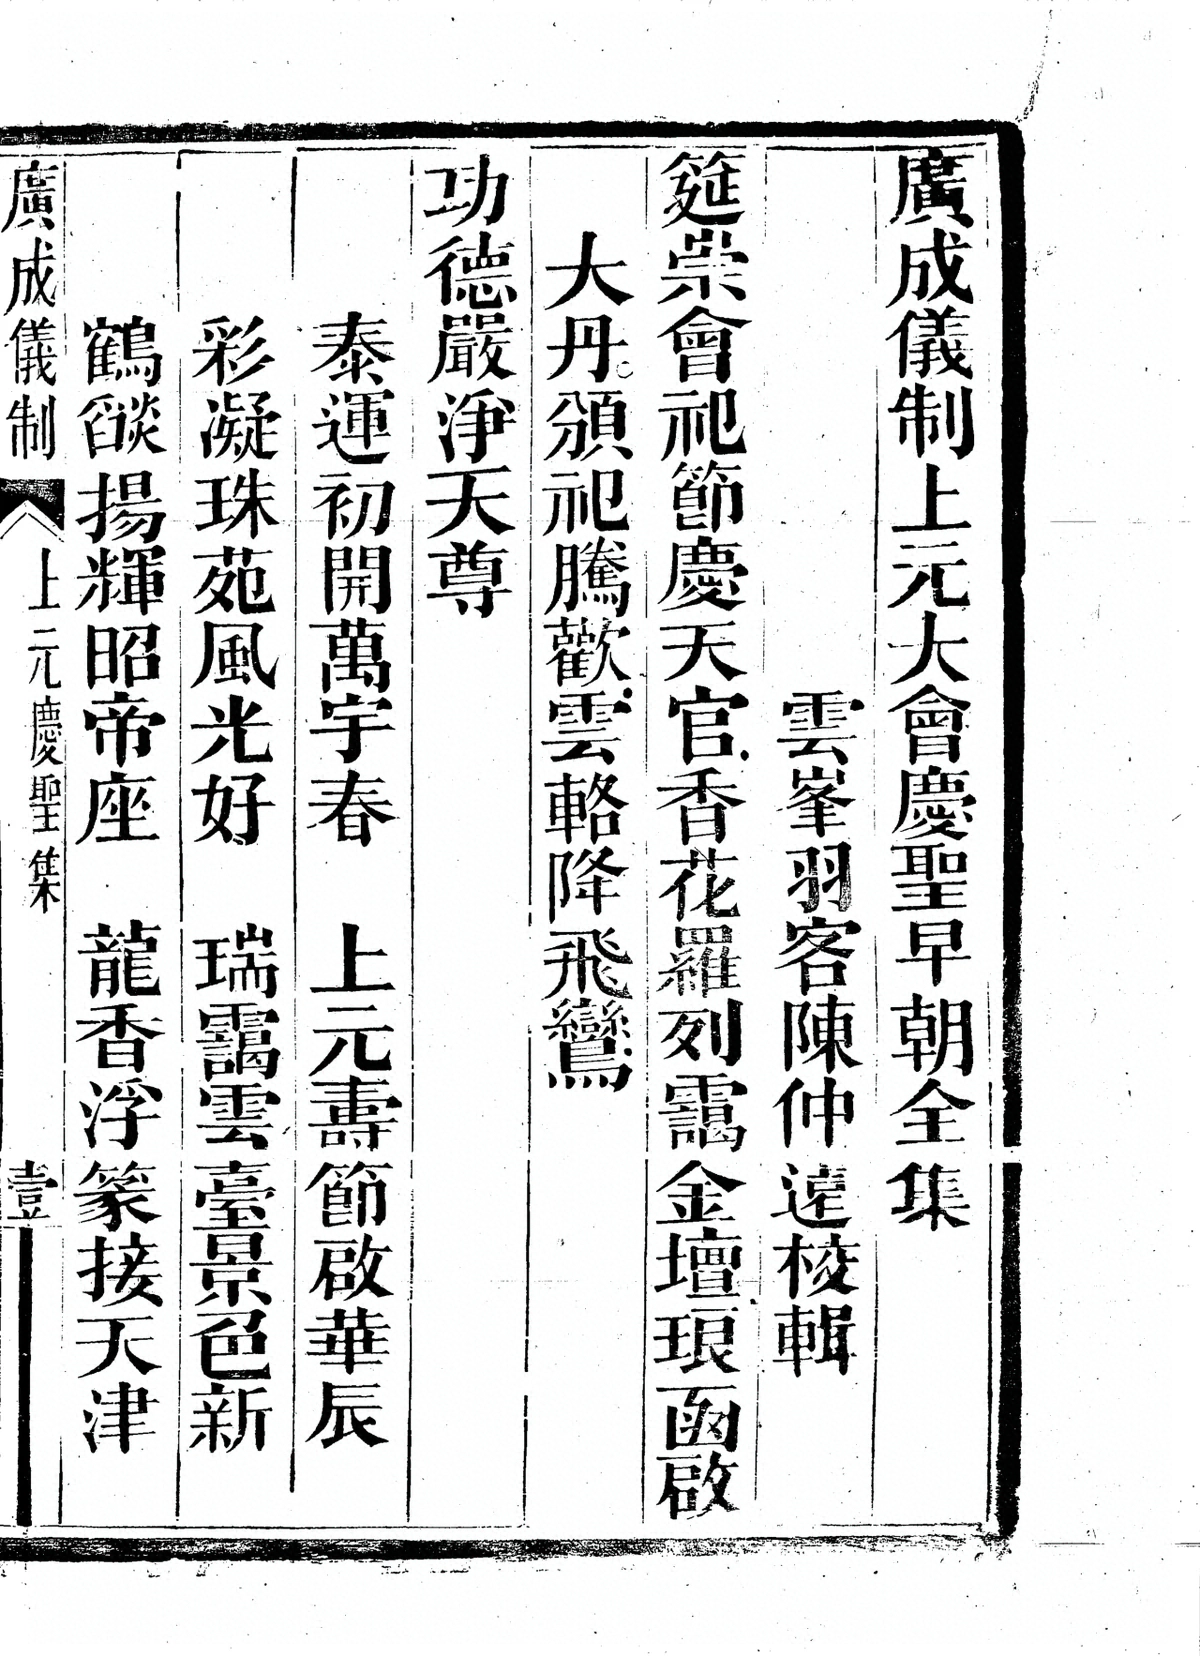 廣成儀制上元大會慶聖早朝全集
雲峯羽客陳仲遠校輯
筵崇會祀節慶天官香花羅列靄金壇琅函啟
大丹頒祀騰歡雲輅降飛鸞
功德嚴淨天尊
泰運初開萬宇春　上元壽節啟華辰
彩凝珠苑風光好　瑞靄雲臺景色新
鶴燄揚輝昭帝座　龍香浮篆接天津
廣成儀制　上元慶聖集　壹